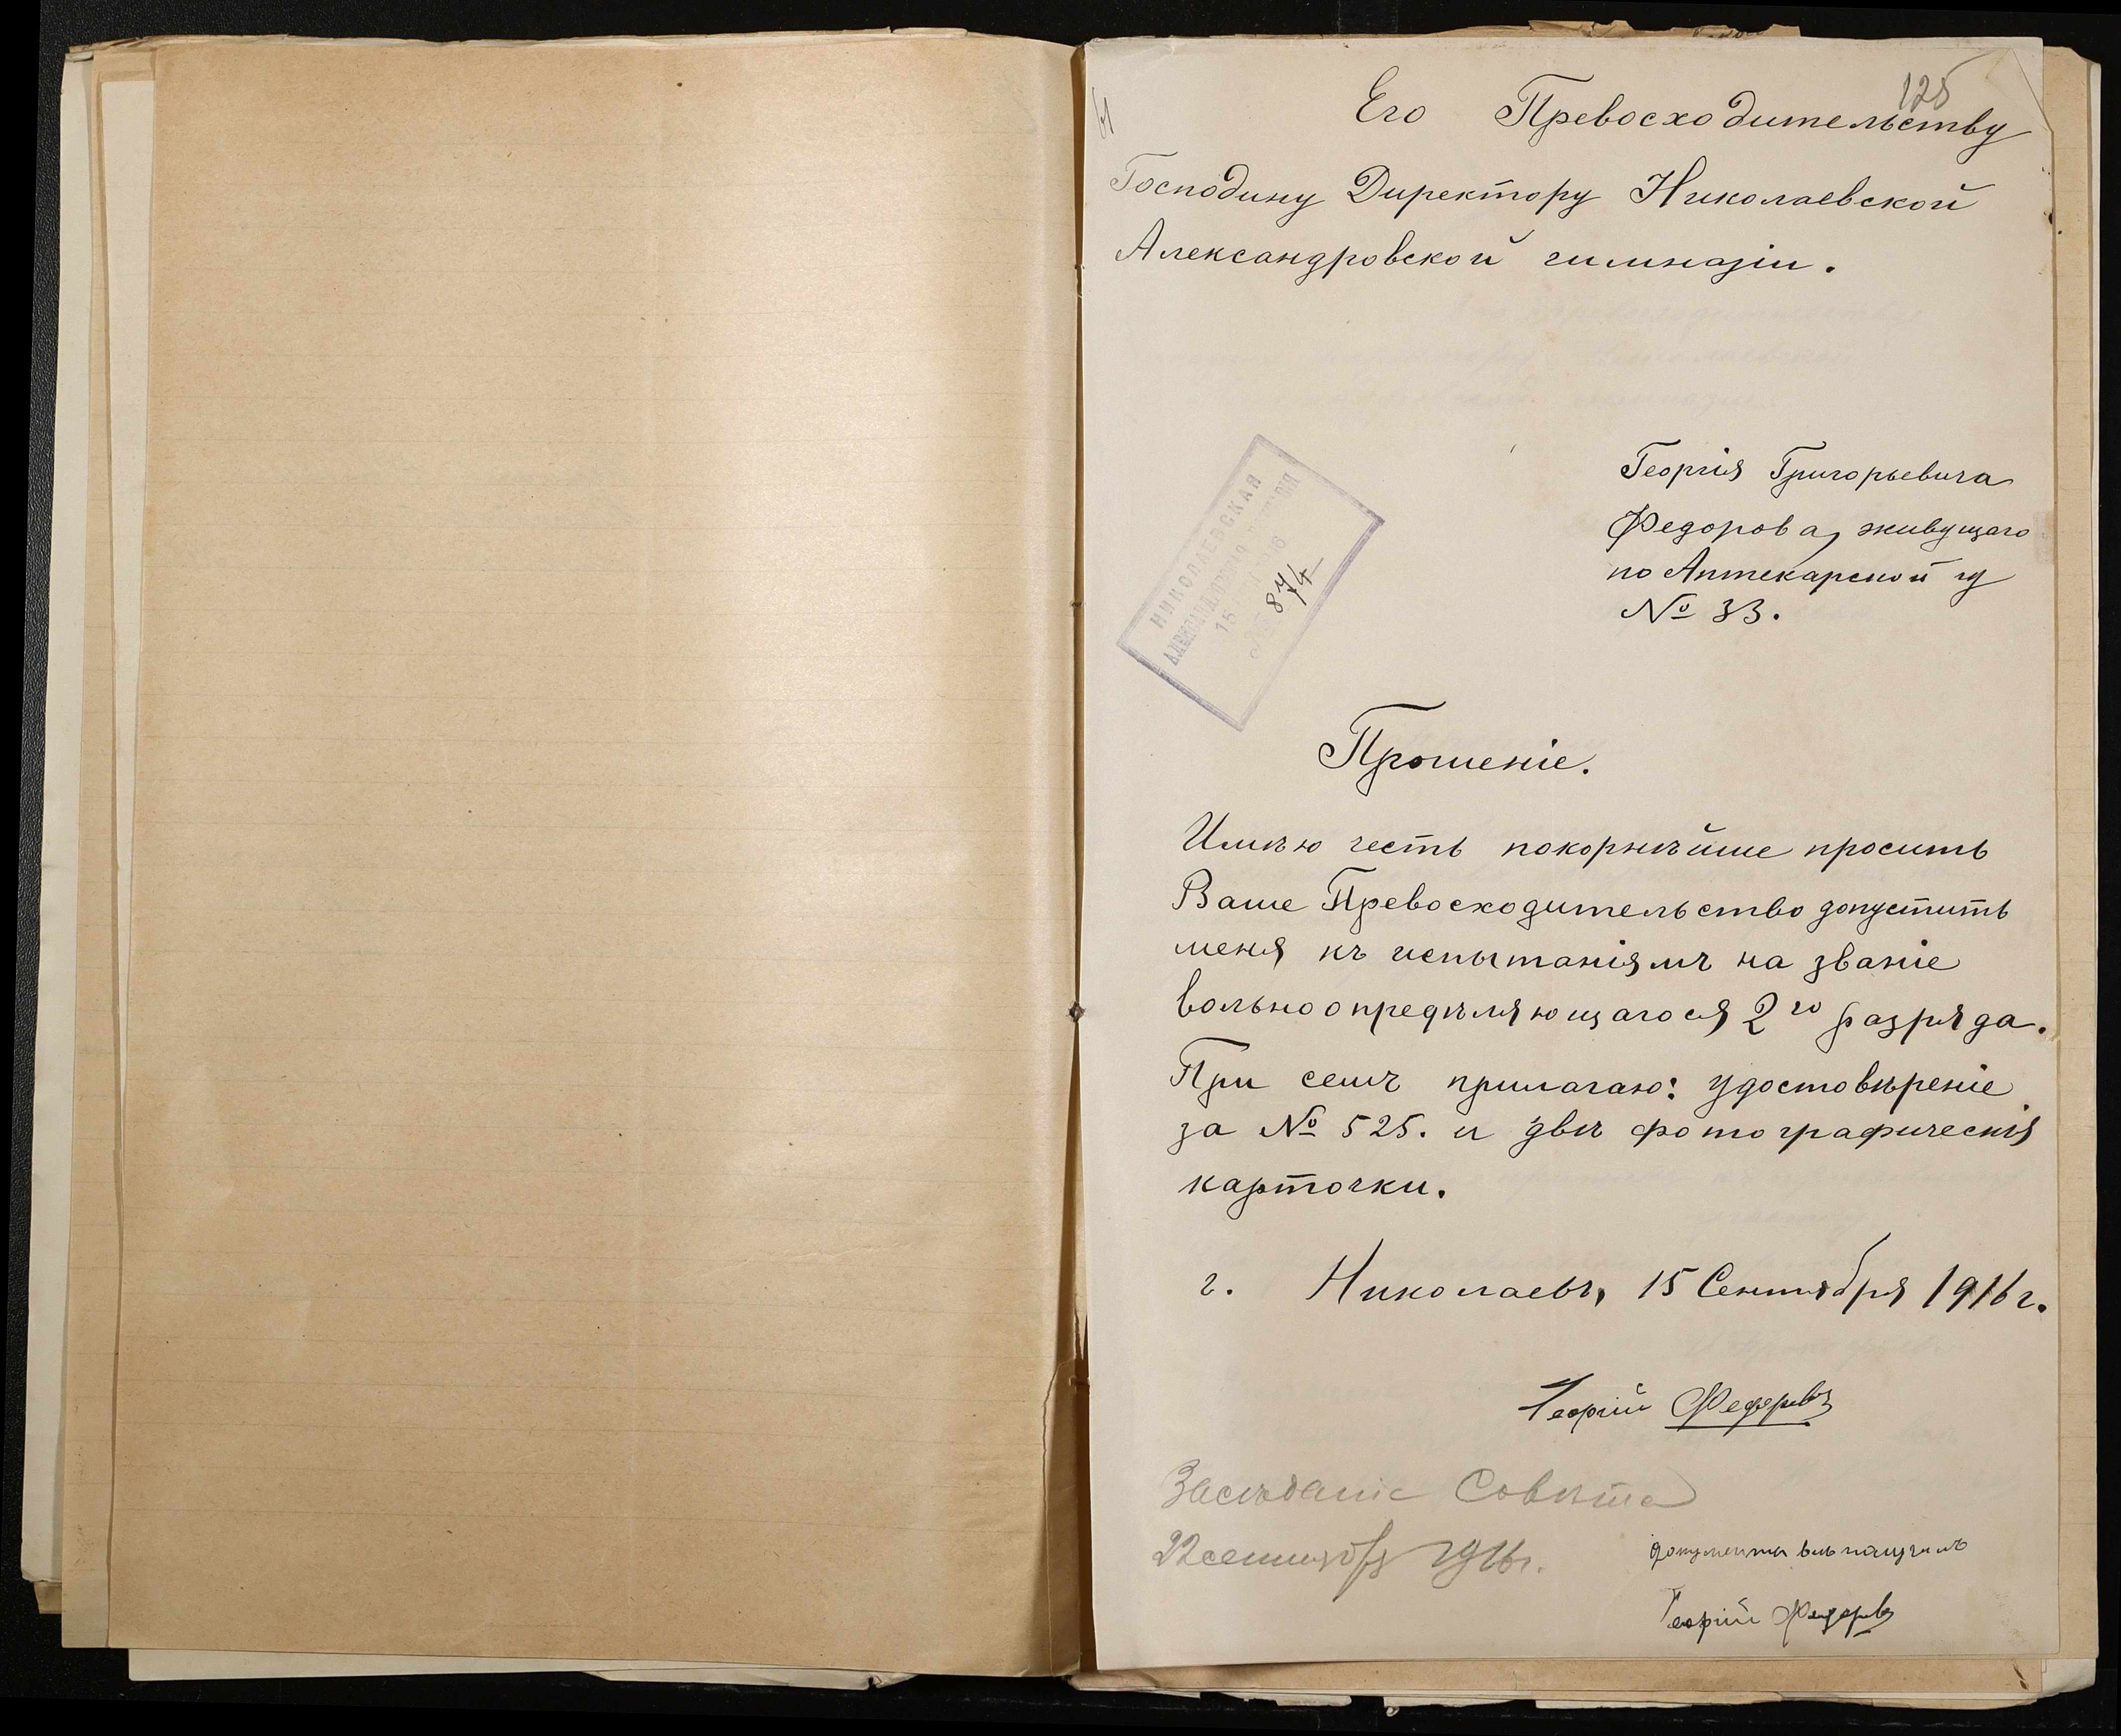 125
Его Превосходительству
Господину Директору Николаевской
Александровской гимназіи.
НИКОЛАЕВСКАЯ
АЛЕКСАНДРОВСКАЯ
15
874
Георгія Григорьевича
Федорова, живущаго
по Аптекарской ул
№ 33.
Прошеніе.
Имѣю честь покорнѣйше просить
Ваше Превосходительство допустить
меня къ испытаніямъ на званіе
вольноопредѣляющагося 2го разряда.
При семъ прилагаю: удостовѣреніе
за № 525. и двѣ фотографическія
карточки.
г. Николаевъ, 15 Сентября 1916 г.
Георгій Федоровъ
Засѣданіе Совѣта
22 сентября 1916 г.
документы всѣ получилъ
Георгій Федоровъ